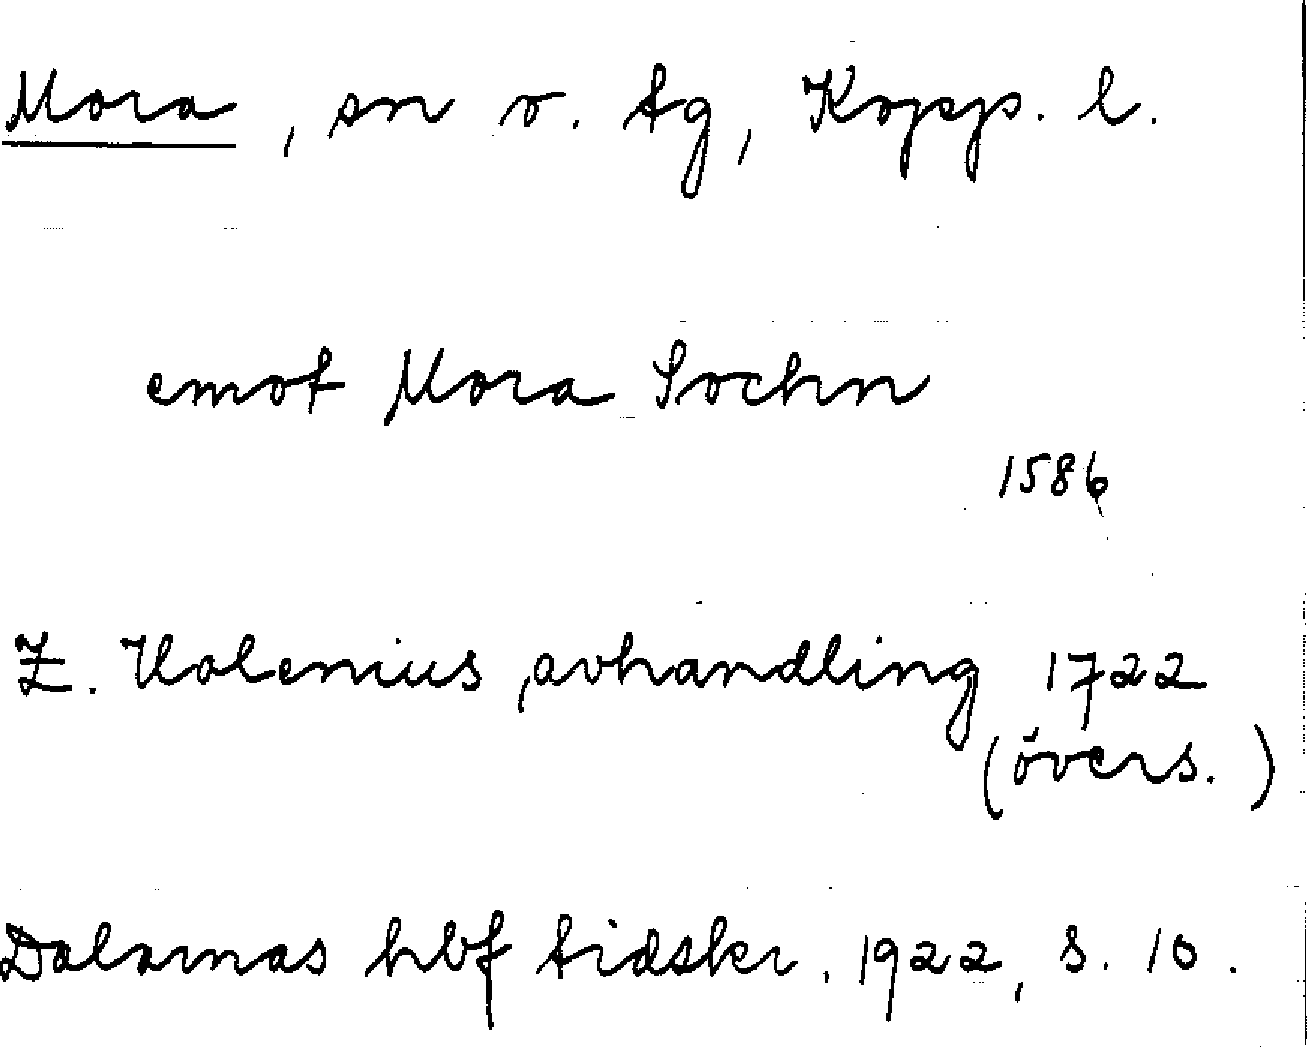 Mora, sn o. tg, Kopp. l.
emot Mora Sochn
1586
Z. Holenius, avhandling 1722
(övers.)
Dalarnas hbf tidskr. 1922, s. 10.